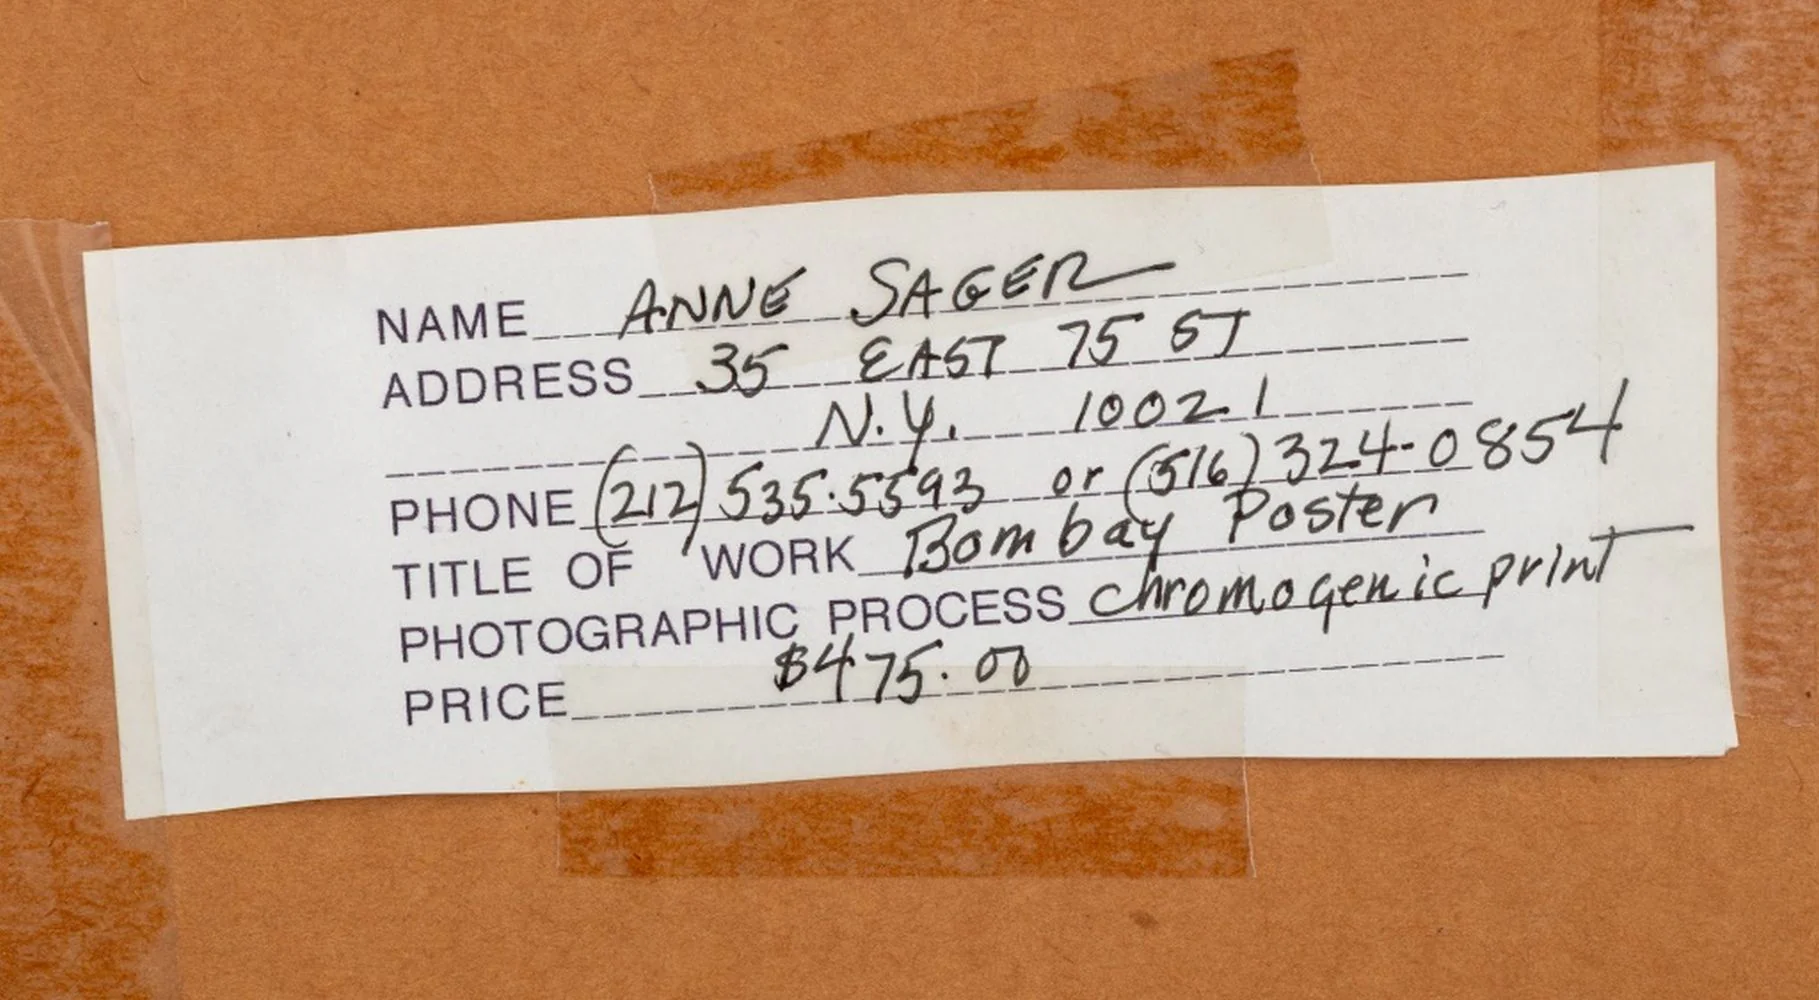 NAME ANNE SAGER
ADDRESS 35 EAST 75 ST
N.Y. 10021
PHONE (212) 535.5593 or (516) 324-0854
TITLE OF WORK Bombay Poster
PHOTOGRAPHIC PROCESS chromogenic print
PRICE $475.00